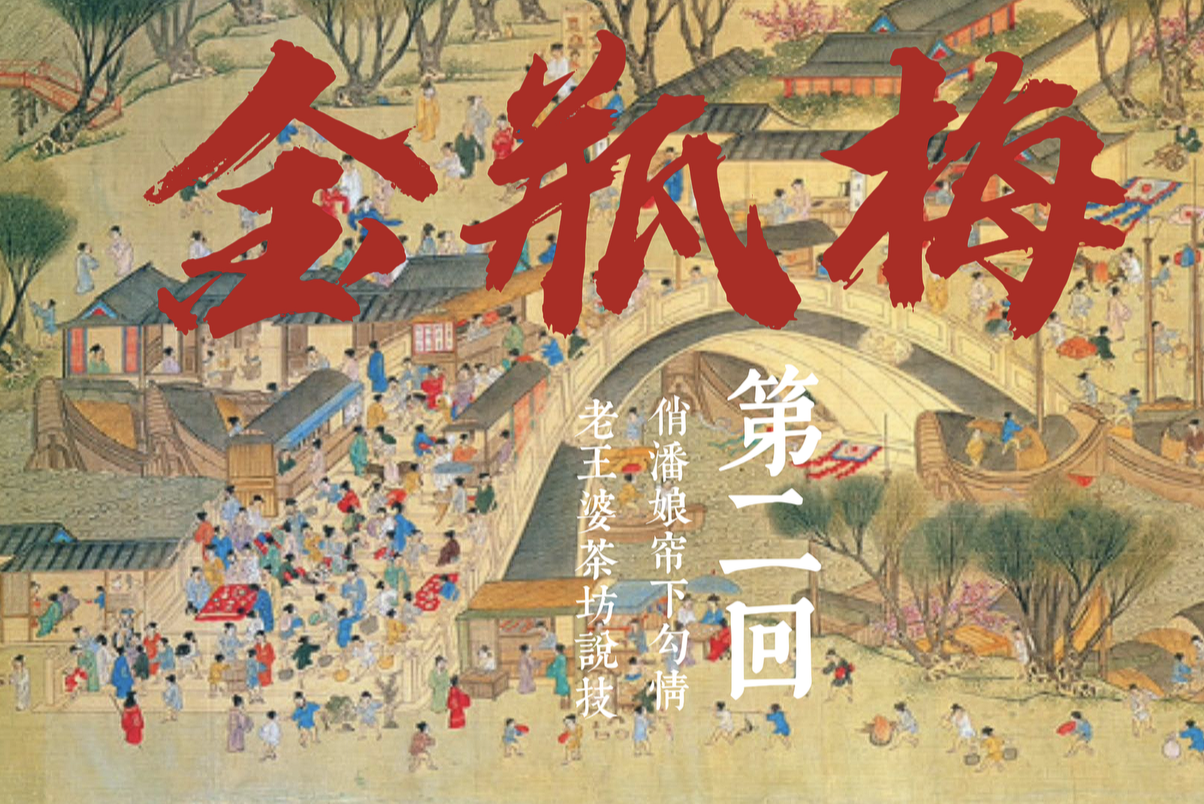 金瓶梅
第二回
俏潘娘帘下勾情
老王婆茶坊說技